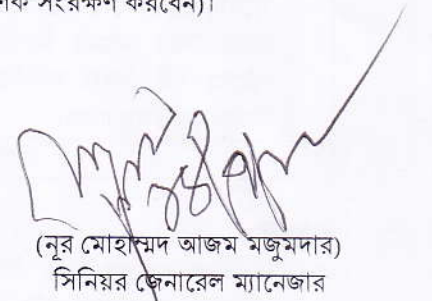 সংরক্ষণ করবেন)।
(নূর মোহাম্মদ আজম মজুমদার)
সিনিয়র জেনারেল ম্যানেজার